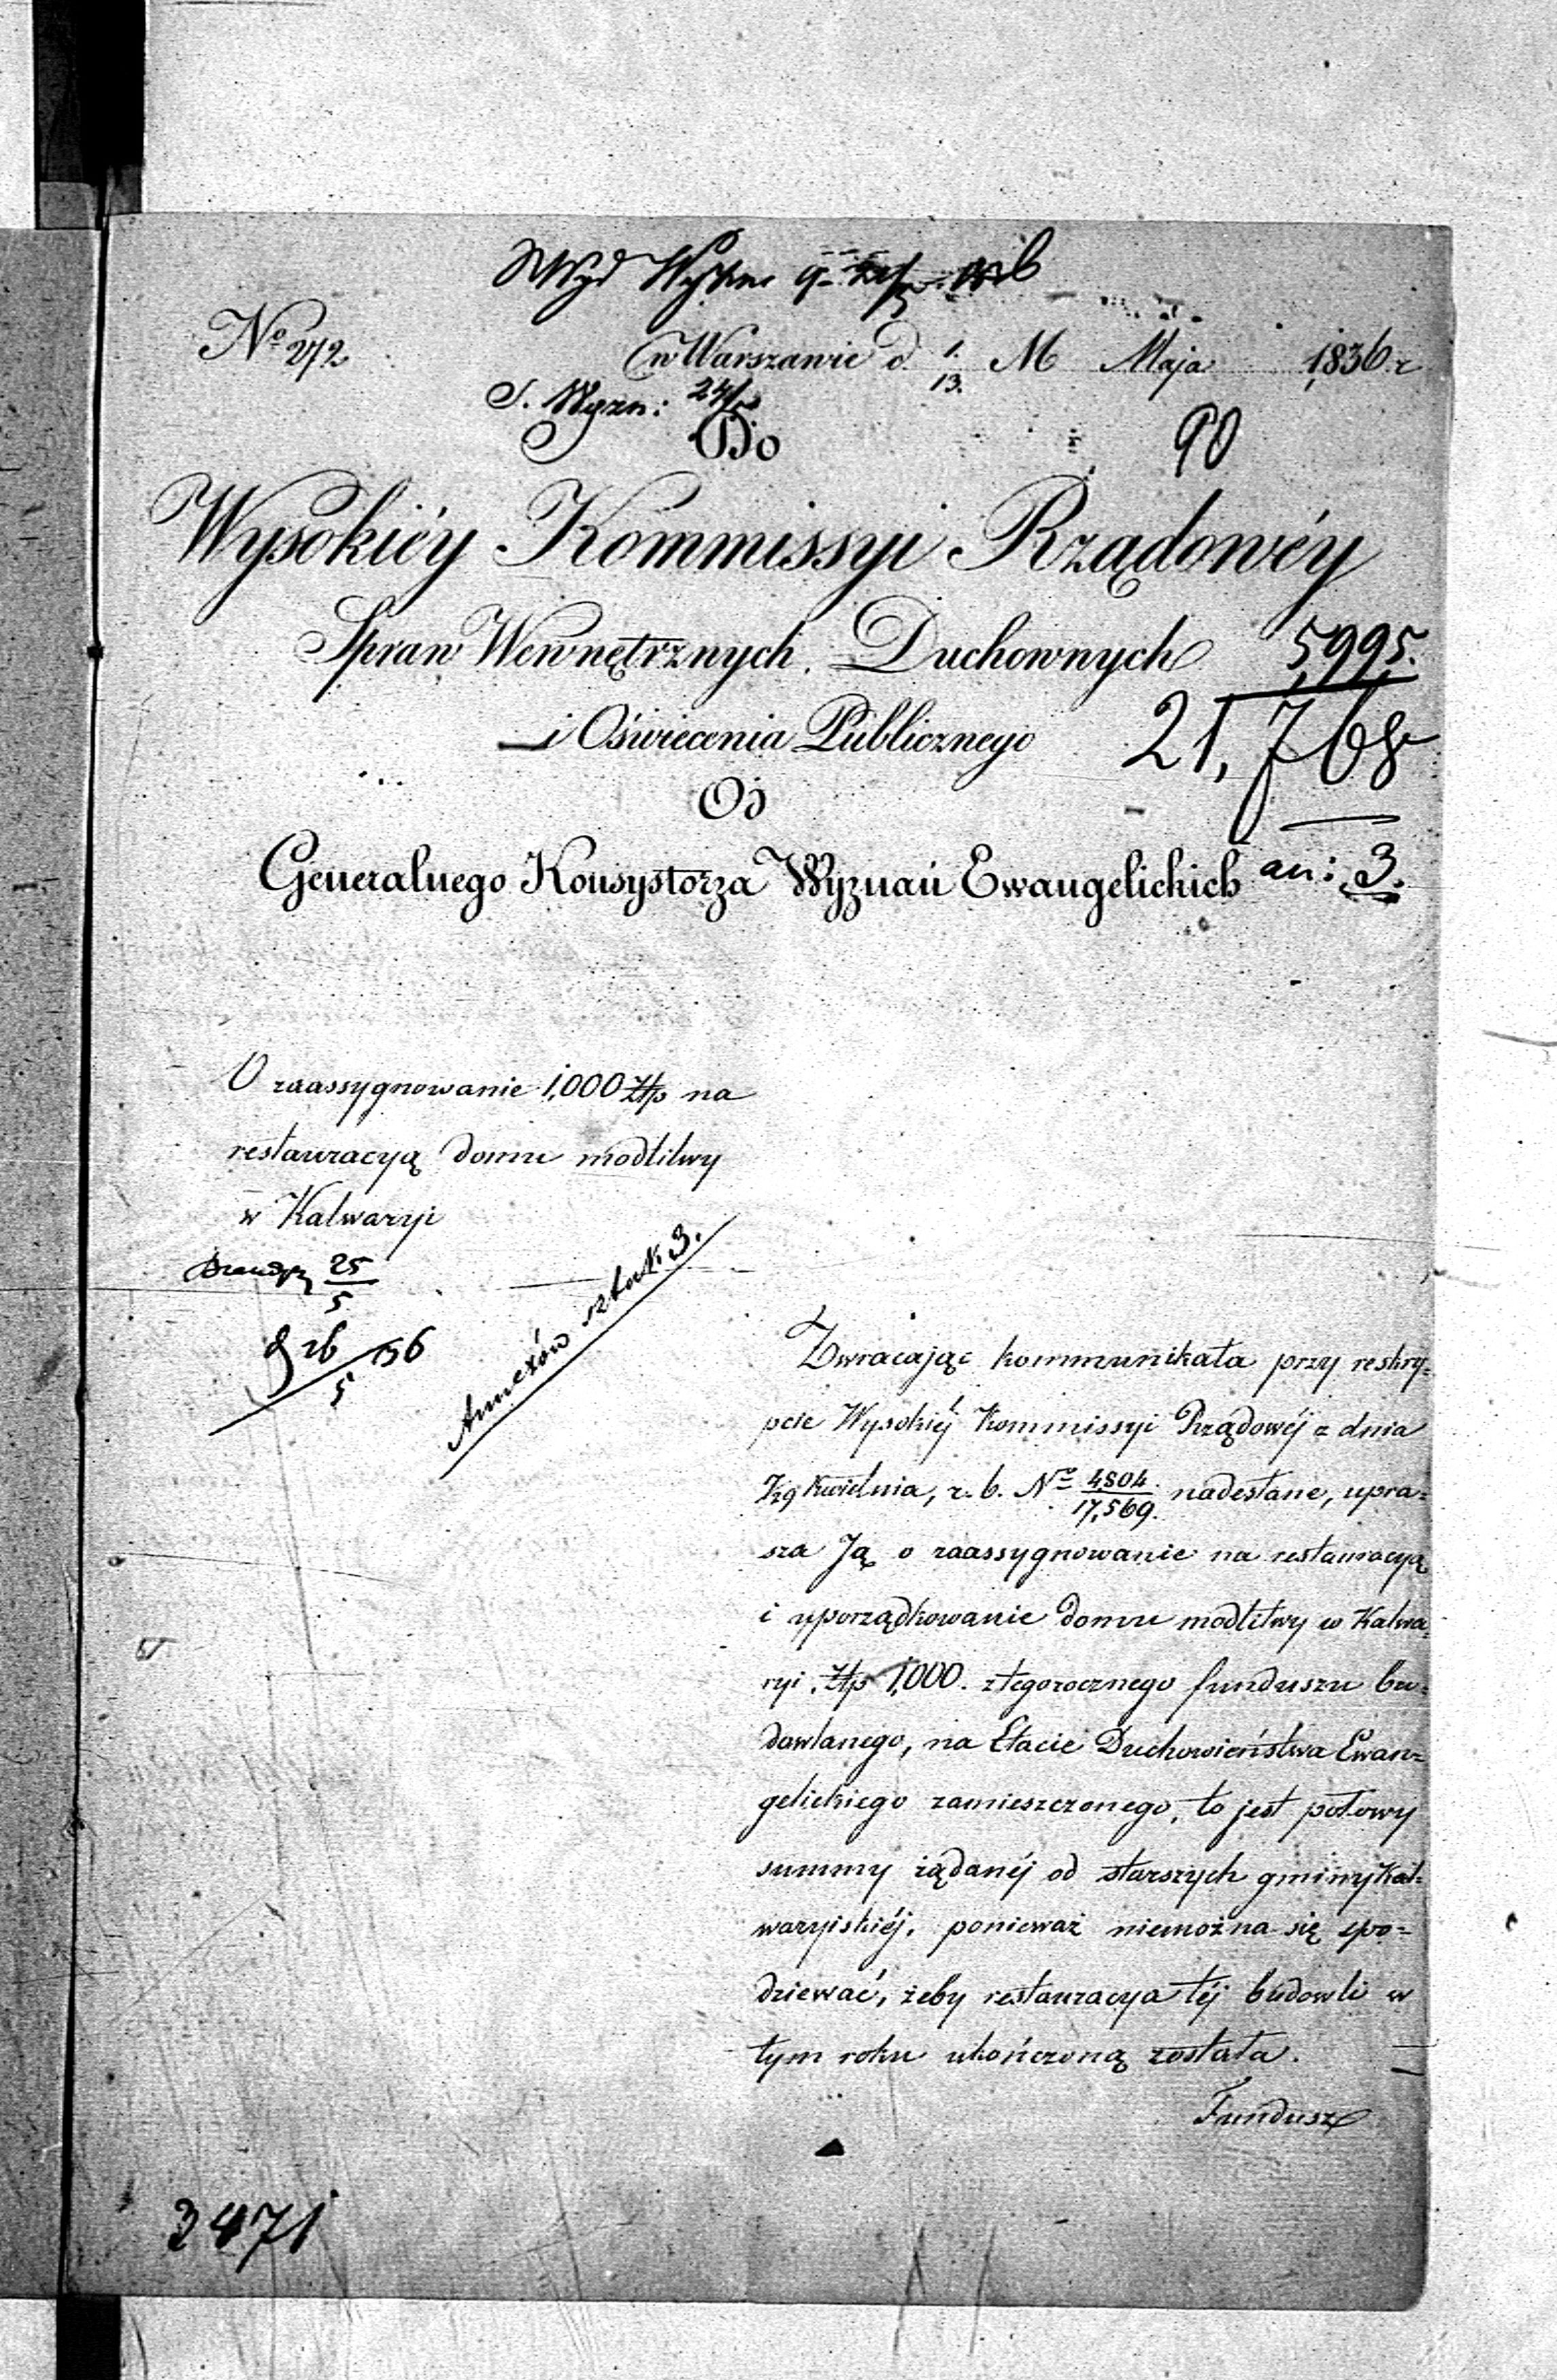 No 272
w Warszawie d. 1./13. M Maja 1836 r
S. Wyzn: 24/5
Do
90
Wysokiéy Kommissyi Rządowéy
Spraw Wewnętrznych, Duchownych
5,995.
i Oświecenia Publicznego
21,768
Od
Generalnego Konsystorza Wyznań Ewangelickich
an: 3.
O zaassygnowanie 1,000 Złp na
restauracyą domu modlitwy
w Kalwaryi
25/5
26/5 36
Annexów sztuk 3.
Zwracając kommunikata przy reskry-
pcie Wysokiéj Kommissyi Rządowéj z dnia
Kwietnia, r. b. No 4804./17,569. nadesłane, upra-
sza Ją o zaassygnowanie na restauracyą
i uporządkowanie domu modlitwy w Kalwa-
ryi, Złp 1,000. z tegorocznego funduszu bu-
dowlanego, na Etacie Duchowieństwa Ewan-
gelickiego zamieszczonego, to jest połowy
summy żądanéj od starszych gminy Kal-
waryiskiéj, ponieważ niemożna się spo-
dziewać, żeby restauracya téj budowli w
tym roku ukończoną została.
Fundusz
3471